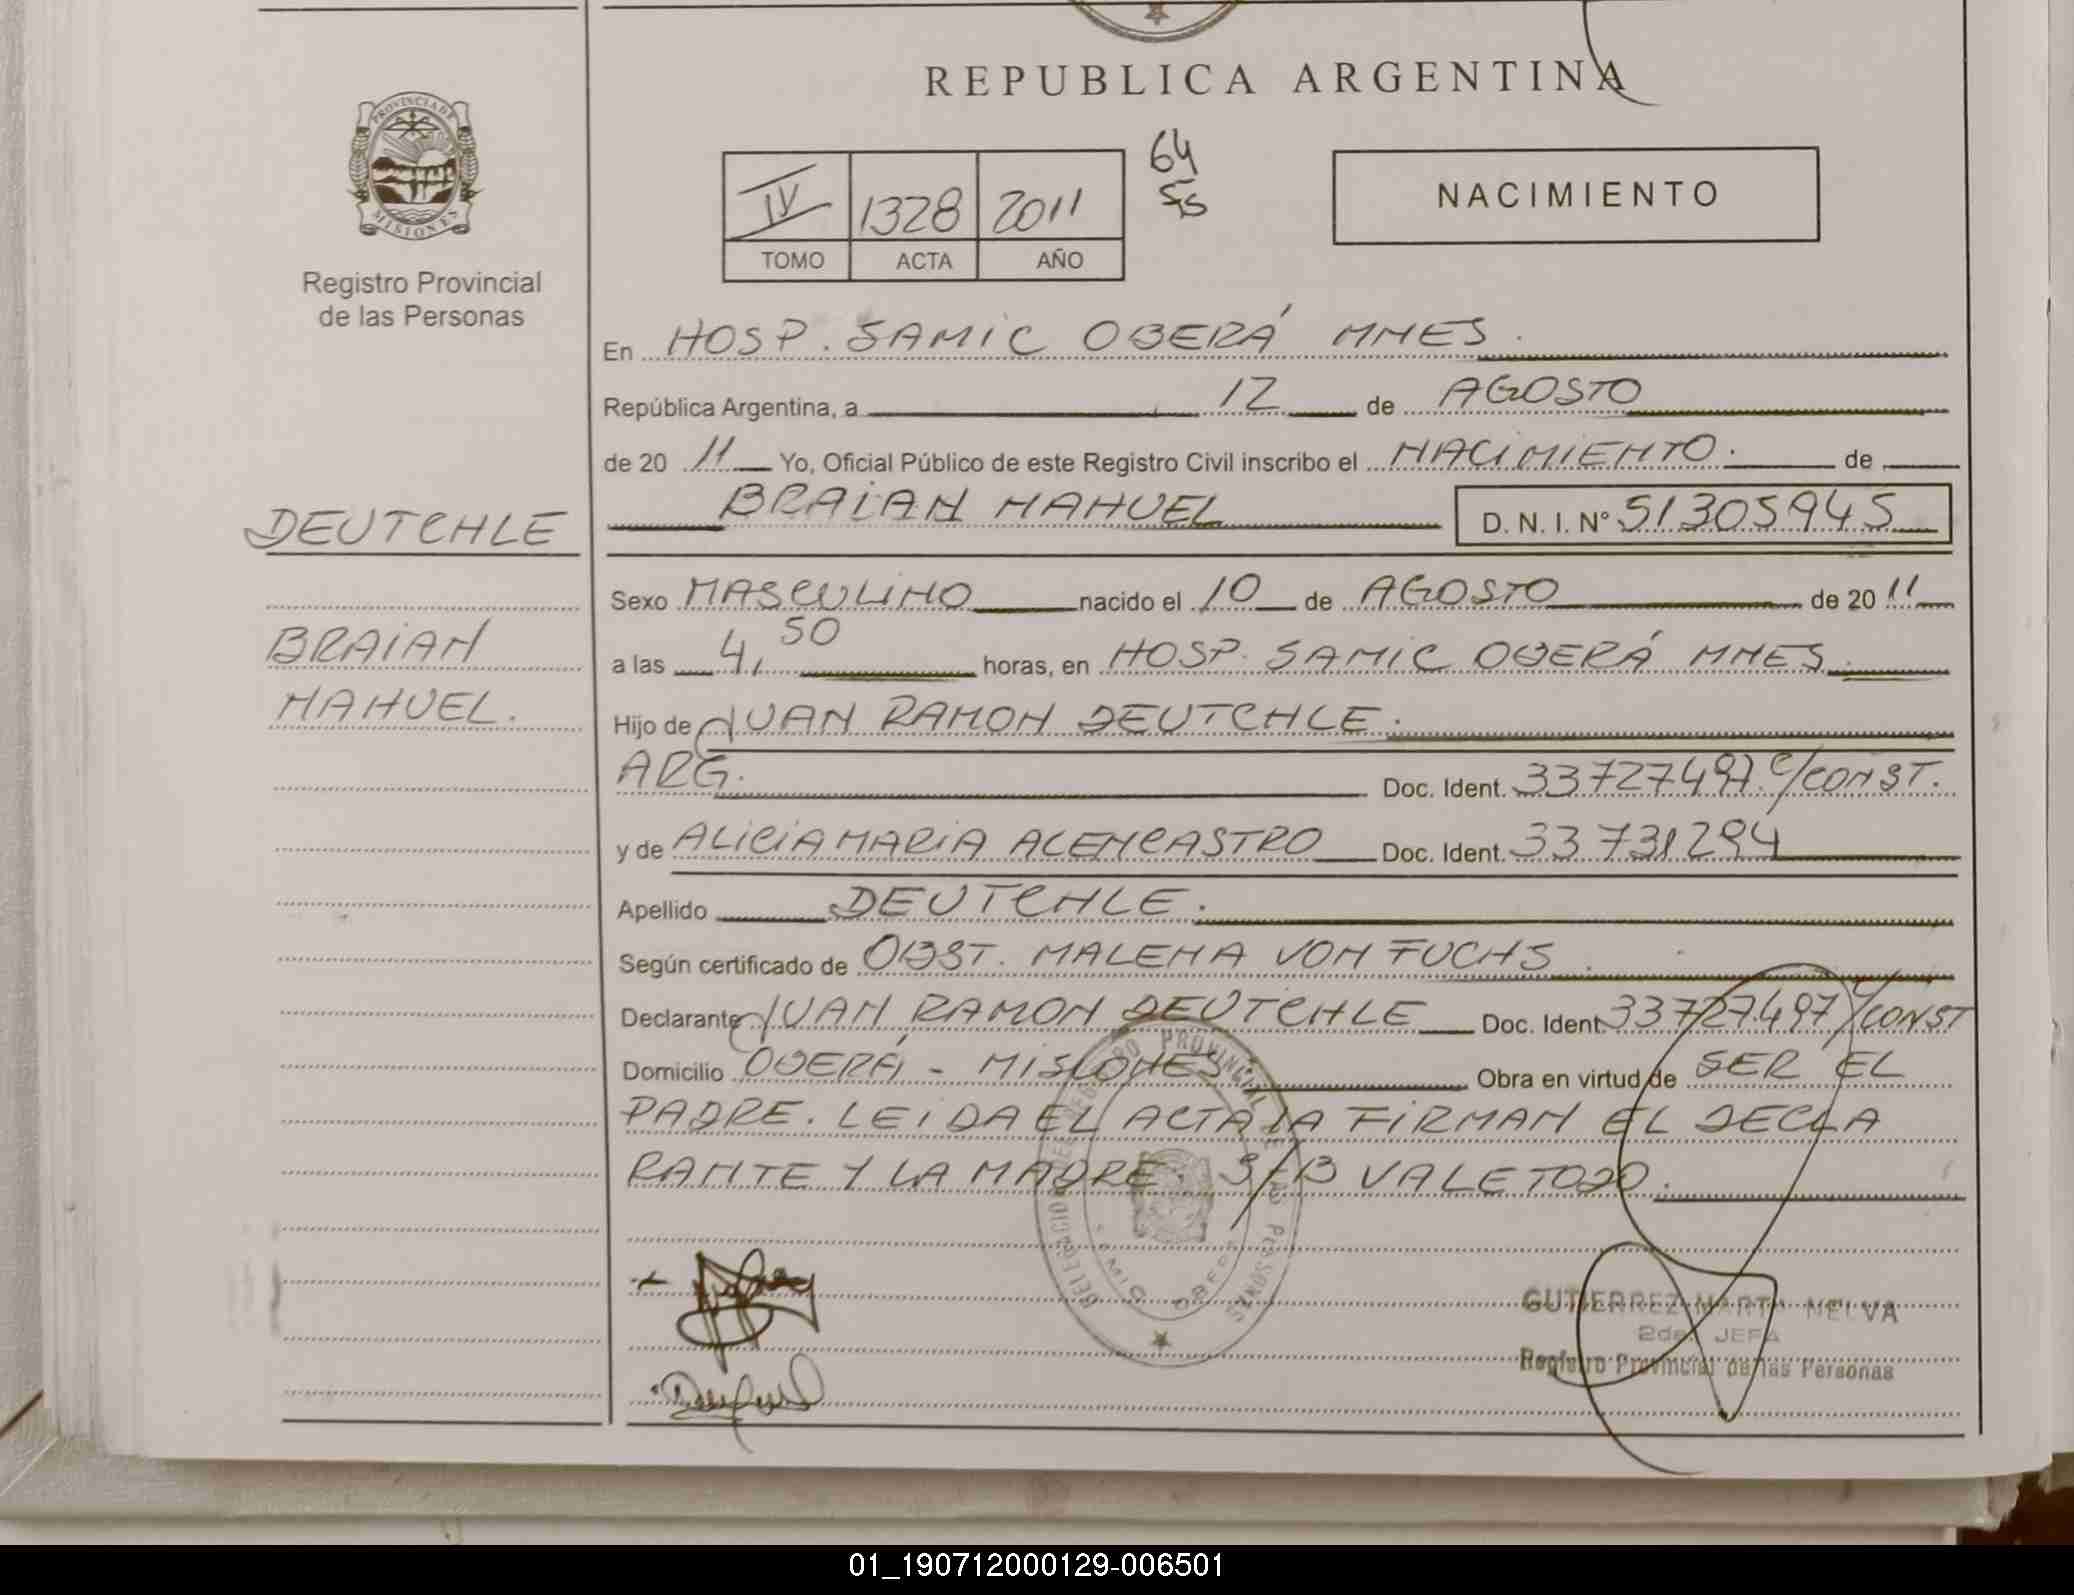 REPUBLICA ARGENTINA
PROVINCIA DE MISIONES
Registro Provincial
de las Personas
64
Fs
IV 1328 2011
TOMO ACTA AÑO
NACIMIENTO
En HOSP. SAMIC OBERÁ MNES.
República Argentina, a 12 de AGOSTO
de 20 11 Yo, Oficial Público de este Registro Civil inscribo el NACIMIENTO. de
BRAIAN NAHUEL D. N. I. Nº 51305945
DEUTCHLE
BRAIAN
NAHUEL.
Sexo MASCULINO nacido el 10 de AGOSTO de 20 11
a las 4,50 horas, en HOSP. SAMIC OBERÁ MNES.
Hijo de JUAN RAMON DEUTCHLE.
ARG. Doc. Ident. 33727497 C/CONST.
y de ALICIA MARIA ALENCASTRO Doc. Ident. 33731294
Apellido DEUTCHLE.
Según certificado de OBST. MALENA VON FUCHS
Declarante JUAN RAMON DEUTCHLE Doc. Ident. 33727497 C/CONST
Domicilio OBERÁ - MISIONES Obra en virtud de SER EL
PADRE. LEIDA EL ACTA LA FIRMAN EL DECLA
RANTE Y LA MADRE. S/B VALE TODO.
DELEGACION DEL REGISTRO PROVINCIAL DE LAS PERSONAS
SAMIC OBERA
GUTIERREZ MARTA NELVA
2da. JEFA
Registro Provincial de las Personas
01_190712000129-006501